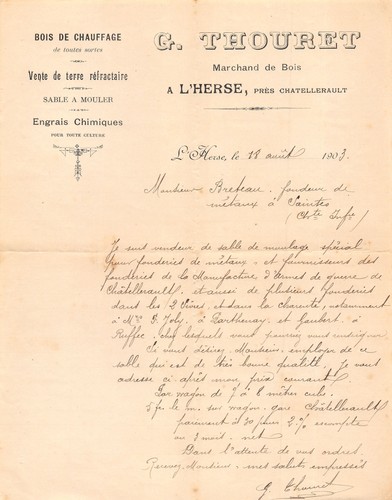 BOIS DE CHAUFFAGE
de toutes sortes
Vente de terre réfractaire
SABLE A MOULER
Engrais Chimiques
POUR TOUTE CULTURE
G. THOURET
Marchand de Bois
A L'HERSE, PRÈS CHATELLERAULT
L'Herse, le 18 août 1903.
Monsieur Breteau, fondeur de
métaux à Saintes
(Chte Infre)
Je suis vendeur de sable de moulage spécial
pour fonderies de métaux, et fournisseur des
fonderies de la Manufacture d'Armes de guerre de
Châtellerault, et aussi de plusieurs fonderies
dans les 2 Sèvres, et dans la charente, notamment
à Mrs G. Joly, à Parthenay, et Gaubert, à
Ruffec, chez lesquels vous pourriez vous renseigner.
Si vous désirez, Monsieur, employer de ce
sable qui est de très bonne qualité, Je vous
adresse ci après mon prix courant
Par wagon de 7 à 8 mètres cube
5 frs le m. sur wagon, gare Châtellerault
paiement à 30 jours 2% escompte
ou 3 mois net
Dans l'attente de vos ordres
Recevez, Monsieur, mes saluts empressés
G. Thouret